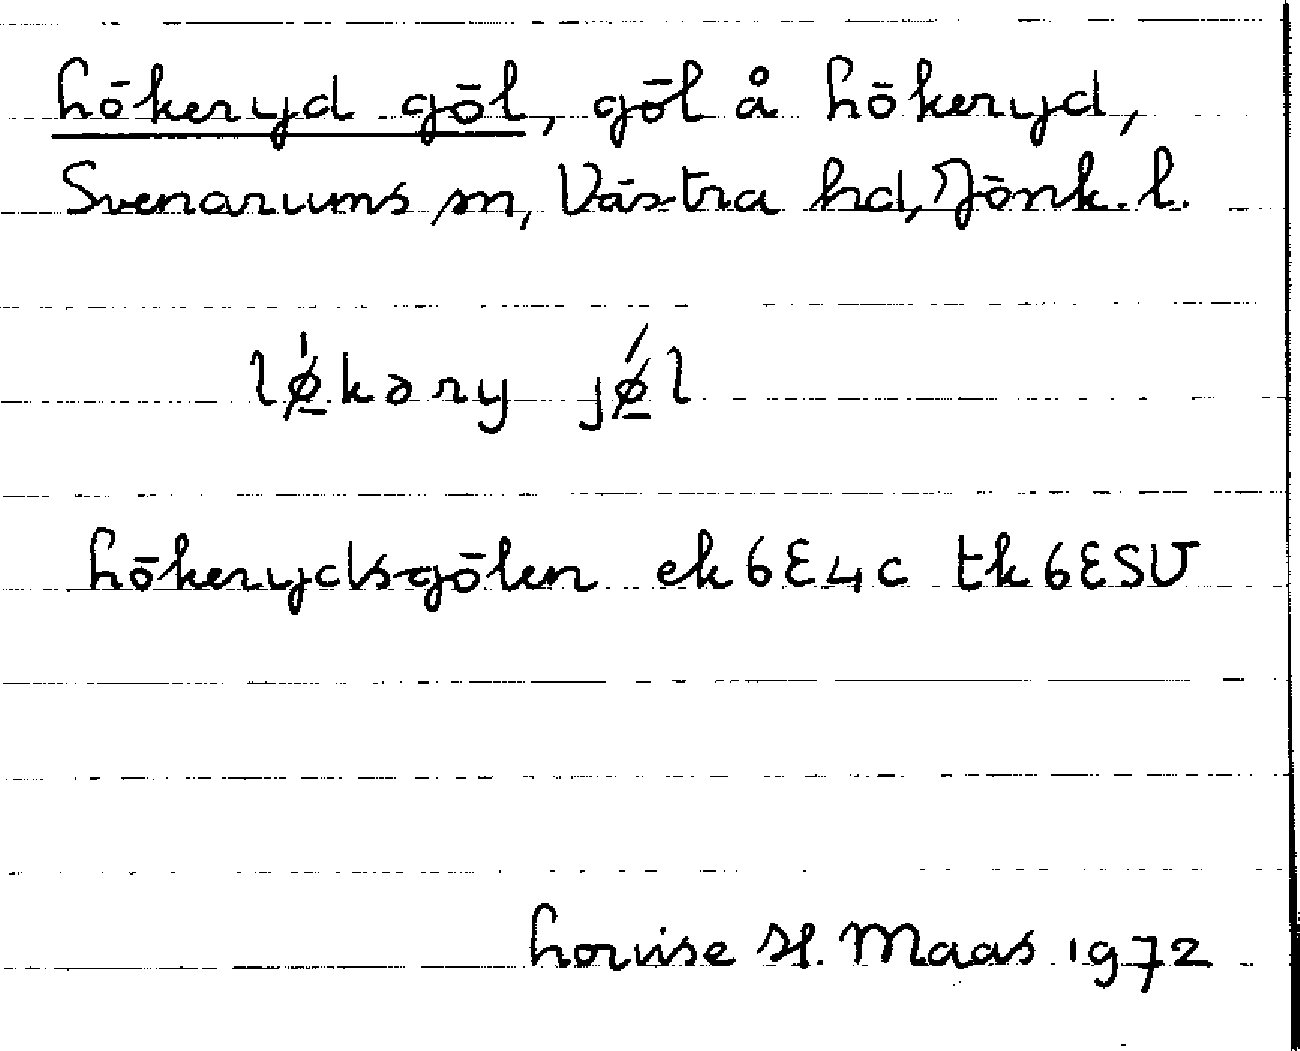 Lökeryd göl, göl å Lökeryd,
Svenarums sn, Västra hd, Jönk. l.
lǿ̱kəry jǿ̱l
Lökerydsgölen ek 6E4c tk 6ESV
Lovise H. Maas 1972